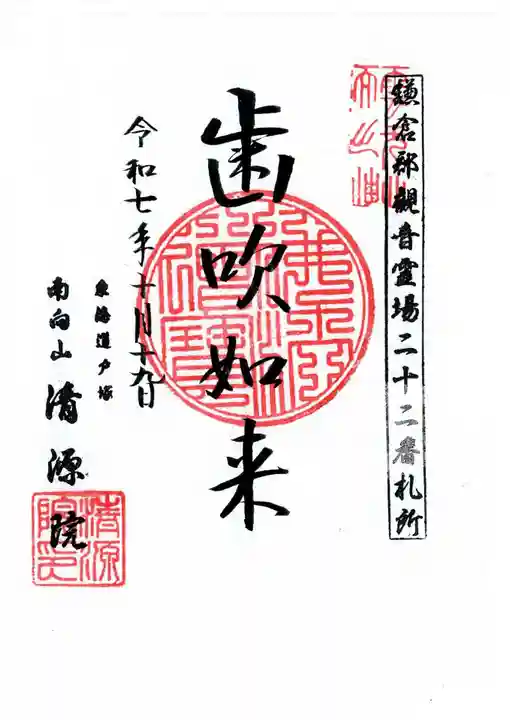 鎌倉郡観音霊場二十二番札所
歯吹如来
令和七年十月十九日
東海道戸塚
南向山 清源院
清源
院印